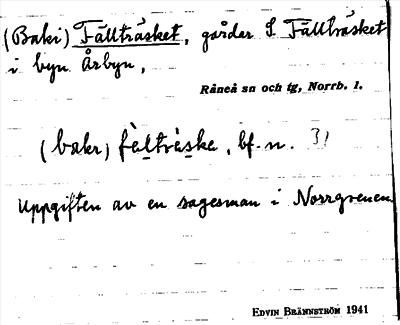 (Baki) Fällträsket, gårdar i Fällträsket
i byn Årbyn,
Råneå sn och tg, Norrb. l.
(bakr) fèltrèske, bf. n. 31
Uppgiften av en sagesman i Norrgrenen
EDVIN BRÄNNSTRÖM 1941